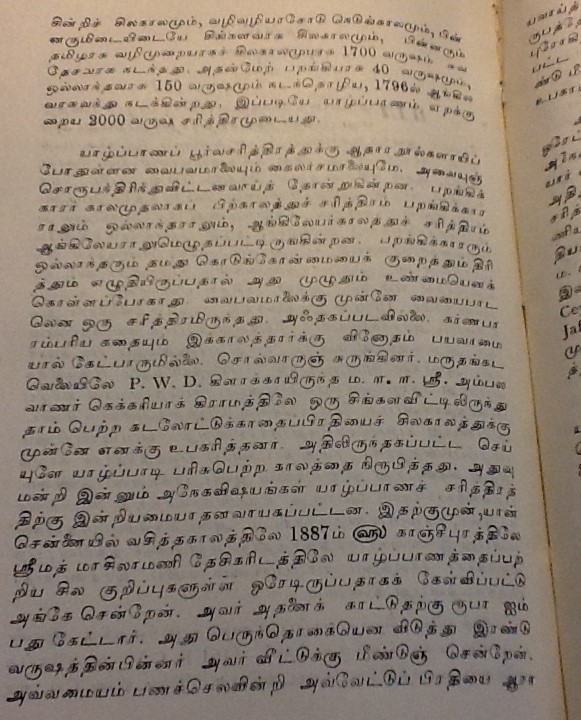 கின்றிச் சிலகாலமும், வழிவழியாசோடு கெடுங்காலமும், பின்
னருமிடையிடையே சிங்களவாசு சிலகாலமும், பின்னரும்
தமிழாசு வழிமுறையாகச் சிலகாலமுமாக 1700 வருஷம் சுவ
தேசவாசு நடந்தது. அதன்மேற் பறங்கியாக 40 வருஷமும்,
ஒல்லாந்தவாசு 150 வருஷமும் நடந்தொழிய, 1796ல் ஆங்கில
வாசுவந்து நடக்கின்றது. இப்படியே யாழ்ப்பாணம் ஏறக்கு
றைய 2000 வருஷ சரித்திரமுடையது.
யாழ்ப்பாணப் பூர்வசரித்திரத்துக்கு ஆதாரநூல்களாயிப்
போதுள்ளன வைபவமாலையும் கைலாசமாலையுமே. அவையுஞ்
சொரூபந்திரிந்துவிட்டனவாய்த் தோன்றுகின்றன. பறங்கிக்
காரர் காலமுதலாகப் பிற்காலத்துச் சரித்திரம் பறங்கிக்கார
ராலும் ஒல்லாந்தராலும், ஆங்கிலேயர்காலத்துச் சரித்திரம்
ஆங்கிலேயராலுமெழுதப்பட்டிருகின்றன. பறங்கிக்காரரும்
ஒல்லாந்தரும் தமது கொடுங்கோன்மையைக் குறைத்தும் திரி
த்தும் எழுதியிருப்பதால் அது முழுதும் உண்மையெனக்
கொள்ளப்போகாது. வைபவமாலைக்கு முன்னே வையைபாட
லென ஒரு சரித்திரமிருந்தது. அஃதகப்படவில்லை. கர்ணபா
ரம்பரிய கதையும் இக்காலத்தார்க்கு வினோதம் பயவாமை
யால் கேட்பாருமில்லை. சொல்வாருஞ் சுருங்கினர். மருதங்கட
வெலையிலே P. W. D. கிளாக்காயிருந்த ம. ா. ா. ஸ்ரீ. அம்பல
வாணர் கெக்கரியாக் கிராமத்திலே ஒரு சிங்களவீட்டிலிருந்து
தாம் பெற்ற கடலோட்டுக்காதைப்பிரதியைச் சிலகாலத்துக்கு
முன்னே எனக்கு உபகரித்தனர். அதிலிருந்தகப்பட்ட செய்
யுளே யாழ்ப்பாடி பரிசுபெற்ற காலத்தை நிரூபித்தது. அதுவு
மன்றி இன்னும் அநேகவிஷயங்கள் யாழ்ப்பாணச் சரித்திரத்
திற்கு இன்றியமையாதனவாயகப்பட்டன. இதற்குமுன், யான்
சென்னையில் வசித்தகாலத்திலே 1887ம் ௵ காஞ்சீபுரத்திலே
ஸ்ரீமத் மாசிலாமணி தேசிகரிடத்திலே யாழ்ப்பாணத்தைப்பற்
றிய சில குறிப்புகளுள்ள ஒரேடிருப்பதாகக் கேள்விப்பட்டு
அங்கே சென்றேன். அவர் அதனைக் காட்டுதற்கு ரூபா ஐம்
பது கேட்டார். அது பெருந்தொகையென விடுத்து இரண்டு
வருஷத்தின்பின்னர் அவர் வீட்டுக்கு மீண்டுஞ் சென்றேன்.
அவ்வமையம் பணச்செலவின்றி அவ்வேட்டுப் பிரதியை ஆரா